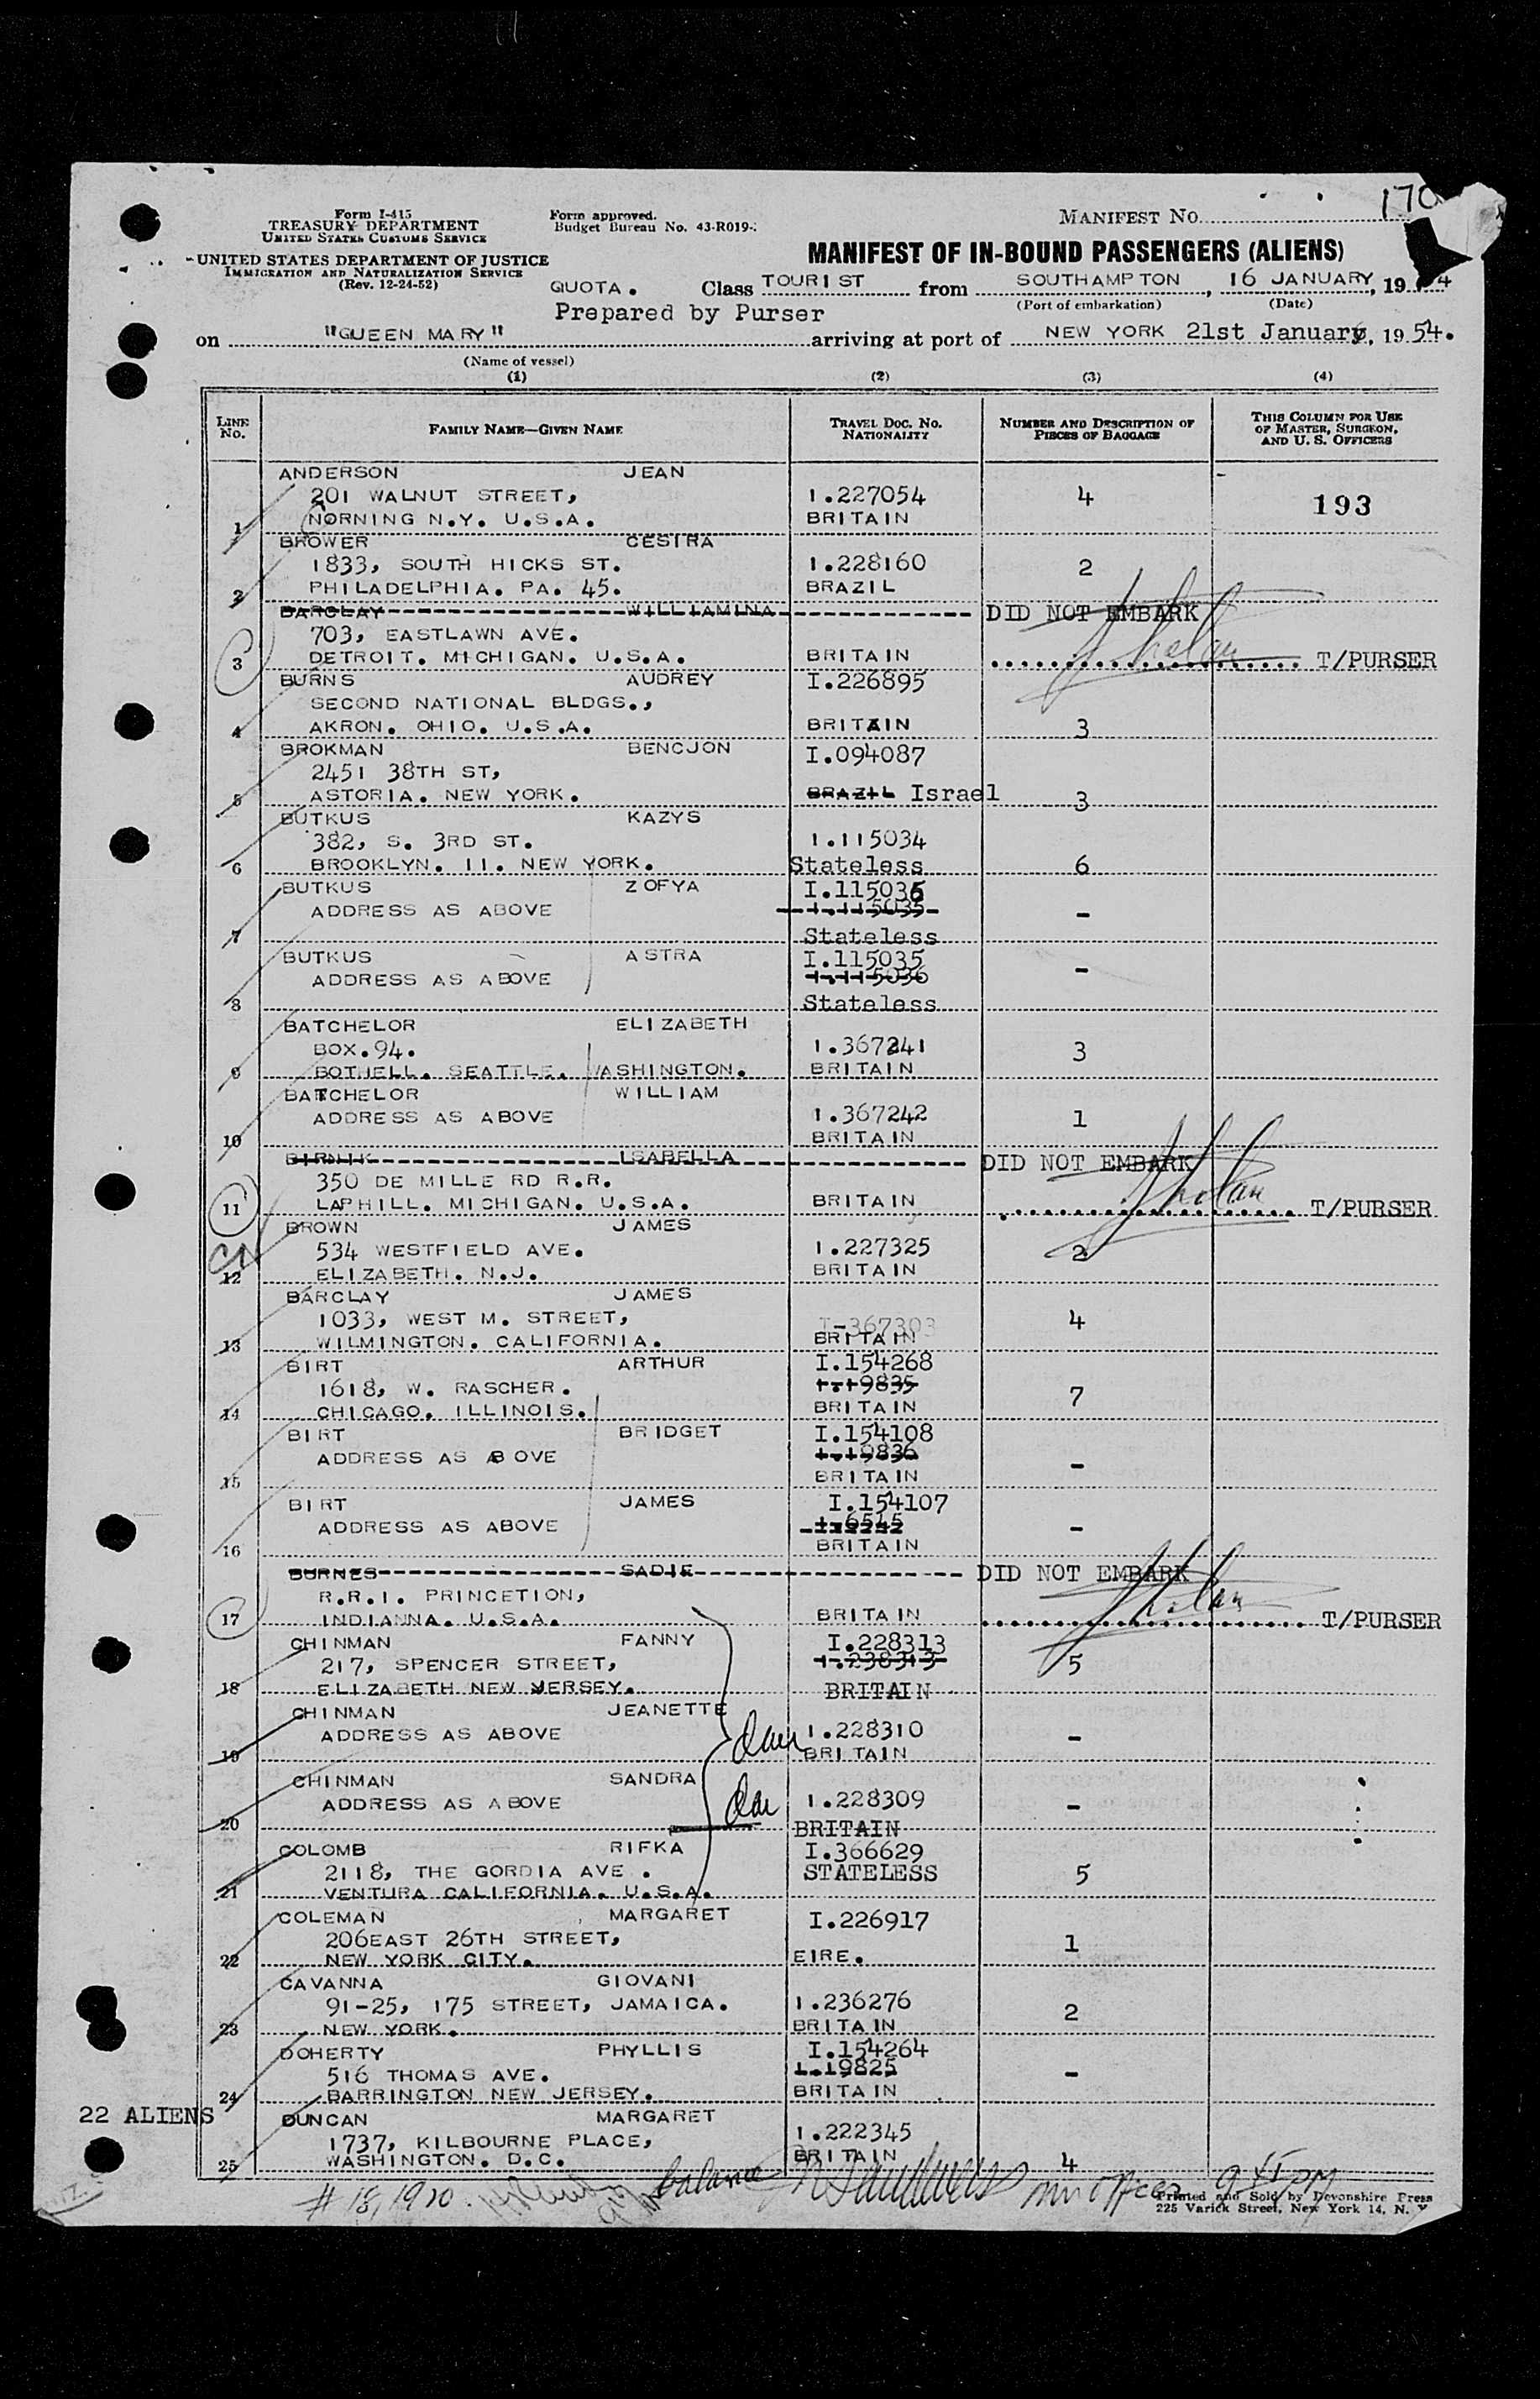 170
Form I-415
TREASURY DEPARTMENT
UNITED STATES CUSTOMS SERVICE
UNITED STATES DEPARTMENT OF JUSTICE
IMMIGRATION AND NATURALIZATION SERVICE
(Rev. 12-24-52)
Form approved.
Budget Bureau No. 43-R019-
MANIFEST NO.
MANIFEST OF IN-BOUND PASSENGERS (ALIENS)
QUOTA. Class TOURIST from SOUTHAMPTON, 16 JANUARY, 19 4
(Port of embarkation) (Date)
Prepared by Purser
on "QUEEN MARY" arriving at port of NEW YORK 21st January, 1954.
(Name of vessel)
(1) (2) (3) (4)
LINE NO. FAMILY NAME—GIVEN NAME TRAVEL DOC. NO. NATIONALITY NUMBER AND DESCRIPTION OF PIECES OF BAGGAGE THIS COLUMN FOR USE OF MASTER, SURGEON, AND U. S. OFFICERS
ANDERSON JEAN
201 WALNUT STREET, I.227054 4 193
1 NORNING N.Y. U.S.A. BRITAIN
BROWER CESIRA
1833, SOUTH HICKS ST. I.228160 2
2 PHILADELPHIA. PA. 45. BRAZIL
BARCLAY WILLIAMINA DID NOT EMBARK
703, EASTLAWN AVE.
3 DETROIT. MICHIGAN. U.S.A. BRITAIN T/PURSER
BURNS AUDREY I.226895
SECOND NATIONAL BLDGS.,
4 AKRON. OHIO. U.S.A. BRITAIN 3
BROKMAN BENCJON I.094087
2451 38TH ST,
5 ASTORIA. NEW YORK. BRAZIL Israel 3
BUTKUS KAZYS
382, S. 3RD ST. I.115034
6 BROOKLYN. 11. NEW YORK. Stateless 6
BUTKUS ZOFYA I.115036
ADDRESS AS ABOVE I.115035 -
7 Stateless
BUTKUS ASTRA I.115035
ADDRESS AS ABOVE I.115036 -
8 Stateless
BATCHELOR ELIZABETH
BOX.94. I.367241 3
9 BOTHELL. SEATTLE. WASHINGTON. BRITAIN
BATCHELOR WILLIAM
ADDRESS AS ABOVE I.367242 1
10 BRITAIN
BIRNIK ISABELLA DID NOT EMBARK
350 DE MILLE RD R.R.
11 LAPHILL. MICHIGAN. U.S.A. BRITAIN T/PURSER
BROWN JAMES
534 WESTFIELD AVE. I.227325 2
12 ELIZABETH. N.J. BRITAIN
BARCLAY JAMES
1033, WEST M. STREET, I-367303 4
13 WILMINGTON. CALIFORNIA. BRITAIN
BIRT ARTHUR I.154268
1618, W. RASCHER. I.19835 7
14 CHICAGO. ILLINOIS. BRITAIN
BIRT BRIDGET I.154108
ADDRESS AS ABOVE I.19836 -
15 BRITAIN
BIRT JAMES I.154107
ADDRESS AS ABOVE -
16 BRITAIN
BURNES SADIE DID NOT EMBARK
R.R.1. PRINCETION,
17 INDIANNA. U.S.A. BRITAIN T/PURSER
CHINMAN FANNY I.228313
217, SPENCER STREET, I.238313 5
18 ELIZABETH NEW JERSEY. BRITAIN
CHINMAN JEANETTE
ADDRESS AS ABOVE I.228310 -
19 BRITAIN
CHINMAN SANDRA
ADDRESS AS ABOVE I.228309 -
20 BRITAIN
COLOMB RIFKA I.366629
2118, THE GORDIA AVE. STATELESS 5
21 VENTURA CALIFORNIA. U.S.A.
COLEMAN MARGARET I.226917
206EAST 26TH STREET, 1
22 NEW YORK CITY. EIRE.
CAVANNA GIOVANI
91-25, 175 STREET, JAMAICA. I.236276 2
23 NEW YORK. BRITAIN
DOHERTY PHYLLIS I.154264
516 THOMAS AVE. I.19825 -
24 BARRINGTON NEW JERSEY. BRITAIN
22 ALIENS
DUNCAN MARGARET
1737, KILBOURNE PLACE, I.222345
25 WASHINGTON. D.C. BRITAIN 4
# 18, 19 20 balance 9 45 PM
Printed and Sold by Devonshire Press
225 Varick Street, New York 14, N. Y